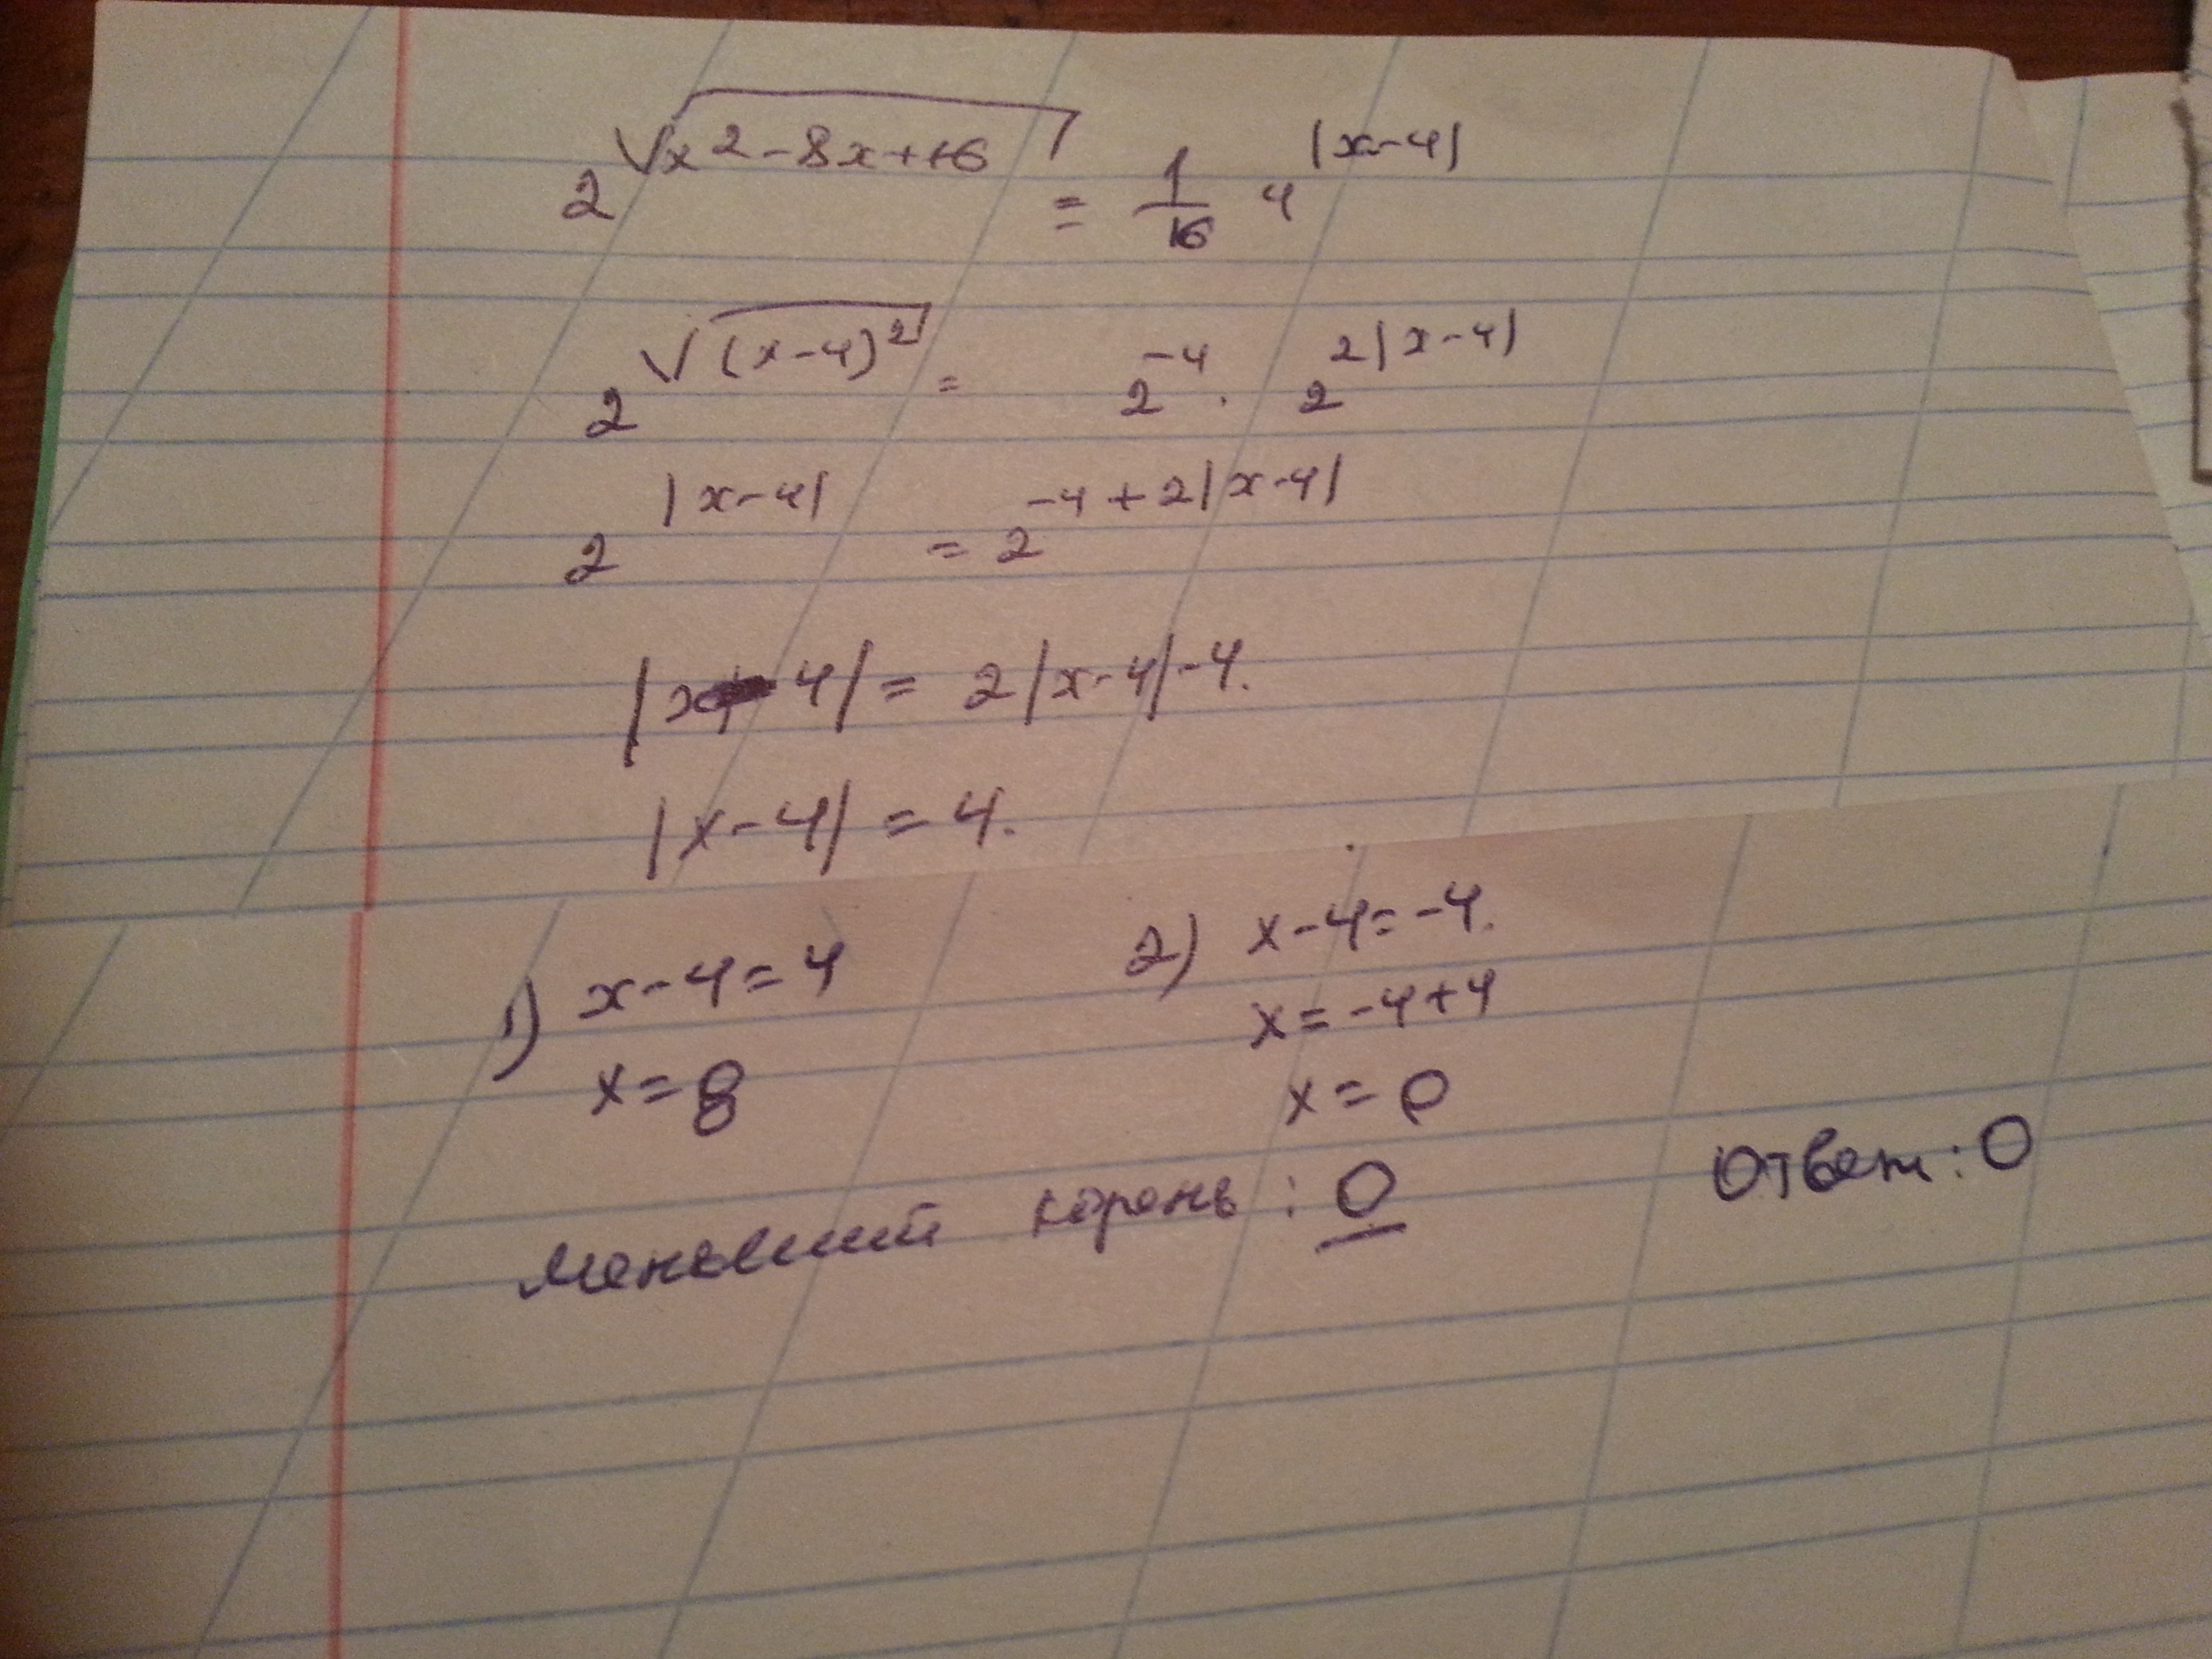 2^√(x²-8x+16) = 1/16 4^|x-4|
2^√((x-4)²) = 2^-4 · 2^2|x-4|
2^|x-4| = 2^-4+2|x-4|
|x-4| = 2|x-4|-4.
|x-4| = 4.
1) x-4=4 2) x-4=-4.
x=-4+4
x=8 x=0
меньший корень: 0 Ответ: 0